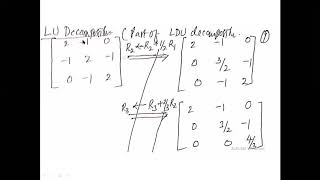 LU Decomposition (Part of LDU decompositn. ①
2 -1 0
-1 2 -1
0 -1 2
R₂ ← R₂ + 1/2 R₁
2 -1 0
0 3/2 -1
0 -1 2
R₃ ← R₃ + 2/3 R₂
2 -1 0
0 3/2 -1
0 0 4/3